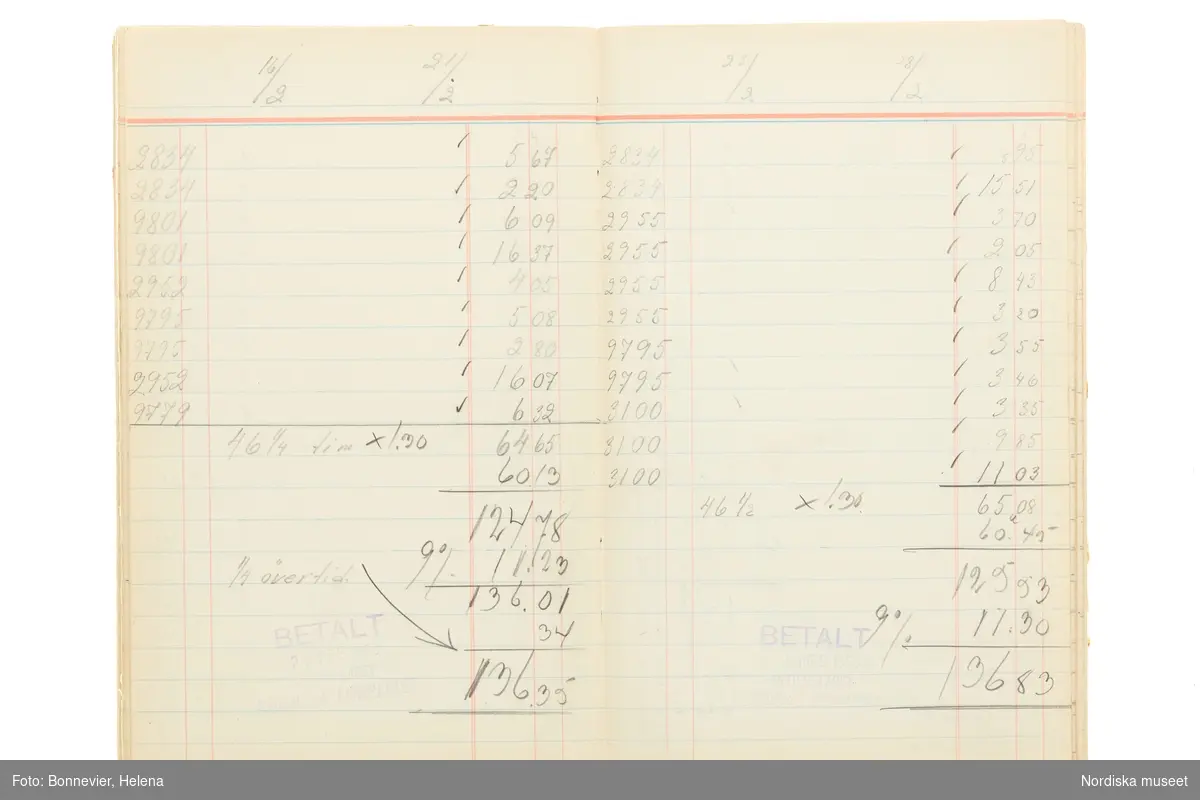 16/2 21/2
2834 5 67
2834 2 20
9801 6 09
9801 16 37
2952 4 05
9795 5 08
9795 2 80
2952 16 07
9779 6 32
46 1/4 tim × 1.30 64 65
60 13
124.78
9%. 11.23
1/2 övertid. 136.01
34
136.35
BETALT
23/2 28/2
2834 95
2834 15 51
2955 3 70
2955 2 05
2955 8 43
2955 3 20
9795 3 55
9795 3 46
3100 3 35
3100 9 85
3100 11 03
46 1/2 × 1.30. 65 08
60.45
125 53
9%. 11.30
136 83
BETALT
Foto: Bonnevier, Helena
Nordiska museet